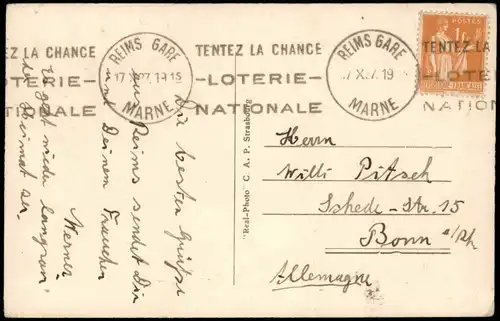 TENTEZ LA CHANCE
LOTERIE
NATIONALE
REIMS GARE
17 X ?37. 19 15
MARNE
TENTEZ LA CHANCE
—LOTERIE—
NATIONALE
REIMS GARE
17 X 37. 19
MARNE
TENTEZ LA
—LOTE
NATION
POSTES
1F
RÉPUBLIQUE FRANÇAISE
Die besten Grüße
aus Reims sendet Dir
und Deinen Frauchen
Werner
Es geht wieder langsam
der Heimat zu.
"Real-Photo" C. A. P. Strasbourg
Herrn
Willi Pitsch
Schede-Str. 15
Bonn a/Rh
Allemagne